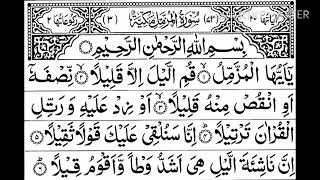 اٰيَاتُهَا ٢٠ (٧٣) سُوْرَةُ الْمُزَّمِّلِ مَكِّيَّةٌ (٣) رُكُوْعَاتُهَا ٢
بِسْمِ اللّٰهِ الرَّحْمٰنِ الرَّحِيْمِ
يٰٓاَيُّهَا الْمُزَّمِّلُ ۙ قُمِ الَّيْلَ اِلَّا قَلِيْلًا ۙ نِّصْفَهٗٓ
اَوِ انْقُصْ مِنْهُ قَلِيْلًا ۙ اَوْ زِدْ عَلَيْهِ وَ رَتِّلِ
الْقُرْاٰنَ تَرْتِيْلًا ؕ اِنَّا سَنُلْقِيْ عَلَيْكَ قَوْلًا ثَقِيْلًا
اِنَّ نَاشِئَةَ الَّيْلِ هِيَ اَشَدُّ وَطْاً وَّ اَقْوَمُ قِيْلًا